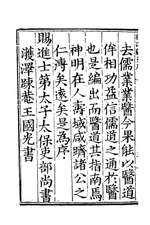 去儒業業醫人果能以醫道
俾相功益信儒道之通於醫
也是編出而醫道其指南馬
神明在人壽域咸躋諸公之
仁溥矣遠矣是為序
賜進士第太子太保吏部尚書
濩澤疎菴王國光書